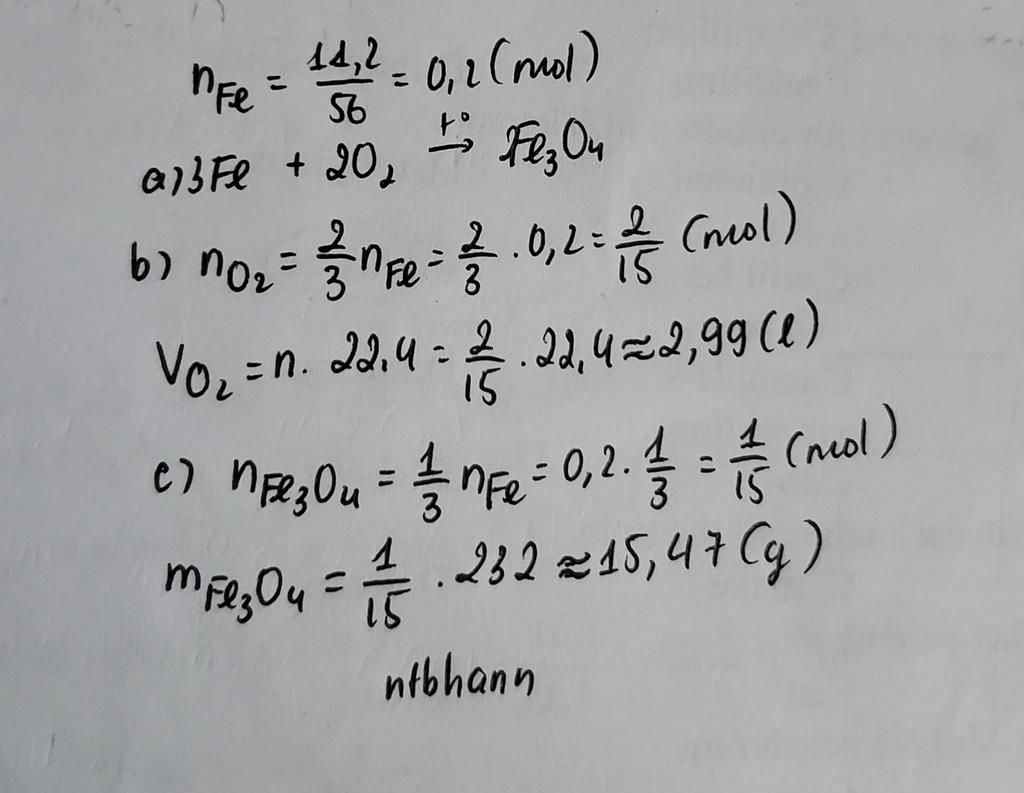 nFe = 11,2/56 = 0,2 (mol)
a) 3Fe + 2O₂ →(t°) Fe₃O₄
b) nO₂ = 2/3 nFe = 2/3 . 0,2 = 2/15 (mol)
VO₂ = n. 22,4 = 2/15 . 22,4 ≈ 2,99 (l)
c) nFe₃O₄ = 1/3 nFe = 0,2. 1/3 = 1/15 (mol)
mFe₃O₄ = 1/15 . 232 ≈ 15,47 (g)
ntbhann